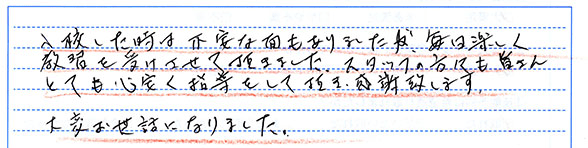 入校した時は不安な面もありましたが、毎日楽しく
教習を受けさせて頂きました。スタッフの方にも皆さん
とても心安く指導をして頂き感謝致します。
大変お世話になりました。